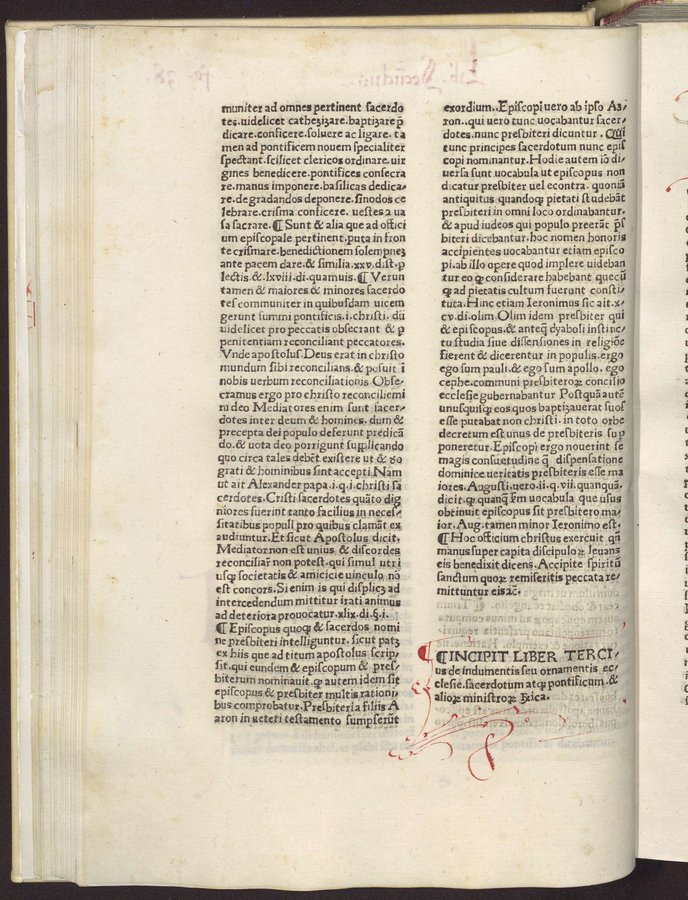 muniter ad omnes pertinent sacerdo
tes.uidelicet cathezizare.baptizare p̄
dicare.conficere.soluere ac ligare. ta
men ad pontificem nouem specialiter
spectant.scilicet clericos ordinare.uir
gines benedicere.pontifices consecra
re.manus imponere.basilicas dedica⸗
re.degradandos deponere.sinodos ce
lebrare.crisma conficere. uestes a ua
sa sacrare.¶ Sunt & alia que ad offici
um episcopale pertinent.puta in fron
te crismare.benedictionem solempnez
ante pacem dare.& similia.xxv.dist.p
lectis.&.lxviii.di.quamuis.¶ Verun
tamen & maiores & minores sacerdo
tes communiter in quibusdam uicem
gerunt summi pontificis.i.christi. dū
uidelicet pro peccatis obsecrant & p
penitentiam reconciliant peccatores.
Vnde apostolus.Deus erat in christo
mundum sibi reconcilians.& posuit ī
nobis uerbum reconciliationis Obse⸗
cramus ergo pro christo reconciliemi
ni deo Mediatores enim sunt sacer⸗
dotes inter deum & homines. dum &
precepta dei populo deferunt predicā
do.& uota deo porrigunt supplicando
quo circa tales debēt existere ut & do
grati & hominibus sint accepti.Nam
ut ait Alexander papa.i.q.i.christi sa
cerdotes.Cristi sacerdotes quāto dig
niores fuerint tanto facilius in neces⸗
sitatibus populi pro quibus clamāt ex
audiuntur.Et sicut Apostolus dicit.
Mediator non est unius & discordes
reconciliari non potest.qui simul utri
usqꝫ societatis & amicicie uinculo nō
est concors.Si enim is qui displicꝫ ad
intercedendum mittitur irati animus
ad deteriora prouocatur.xlix.di.§.i.
¶ Episcopus quoqꝫ & sacerdos nomi
ne presbiteri intelliguntur. sicut patꝫ
ex hiis que ad titum apostolus scrip⸗
sit.qui eundem & episcopum & pres⸗
biterum nominauit.ꝙ autem idem sit
episcopus & presbiter multis rationi⸗
bus comprobatur.Presbiteria filiis A
aron in ueteri testamento sumpserūt
exordium..Episcopi uero ab ipso Aa⸗
ron..qui uero tunc uocabantur sacer⸗
dotes.nunc presbiteri dicuntur . Qui
tunc principes sacerdotum nunc epis
copi nominantur. Hodie autem iō di⸗
uersa sunt uocabula ut episcopus non
dicatur presbiter uel econtra. quoniā
antiquitus quandoqꝫ pietati studebāt
presbiteri in omni loco ordinabantur.
& apud iudeos qui populo preerāt p̄s
biteri dicebantur.hoc nomen honoris
accipientes uocabantur etiam episco
pi.ab illo opere quod implere uideban
tur eo ꝙ considerare habebant quecū
ꝙ ad pietatis cultum fuerunt consti⸗
tuta.Hinc etiam Ieronimus sic ait.x⸗
cv.di.olim. Olim idem presbiter qui
& episcopus.& anteꝙ dyaboli instinc⸗
tu studia siue dissensiones in religiōe
fierent & dicerentur in populis.ergo
ego sum pauli.& ego sum apollo. ego
cephe.communi presbiteroꝝ concilio
ecclesie gubernabantur Postquā autē
unusquisqꝫ eos quos baptizauerat suos
esse putabat non christi. in toto orbe
decretum est unus de presbiteris sup
poneretur. Episcopi ergo nouerint se
magis consuetudine ꝙ dispensatione
dominice ueritatis presbiteris esse ma
iores. Augusti.uero.ii.q.vii.quanquā.
dicit.ꝙ quanꝙ fm uocabula que usus
obtinuit episcopus sit presbitero ma⸗
ior. Aug.tamen minor Ieronimo est.
¶ Hoc officium christus exercuit qñ
manus super capita discipuloꝝ leuans
eis benedixit dicens.Accipite spiritū
sanctum quoꝝ remiseritis peccata re⸗
mittuntur eis ac̄.
¶ INCIPIT LIBER TERCI⸗
us de indumentis seu ornamentis. ec⸗
clesie.sacerdotum atqꝫ pontificum.&
alioꝝ ministroꝝ